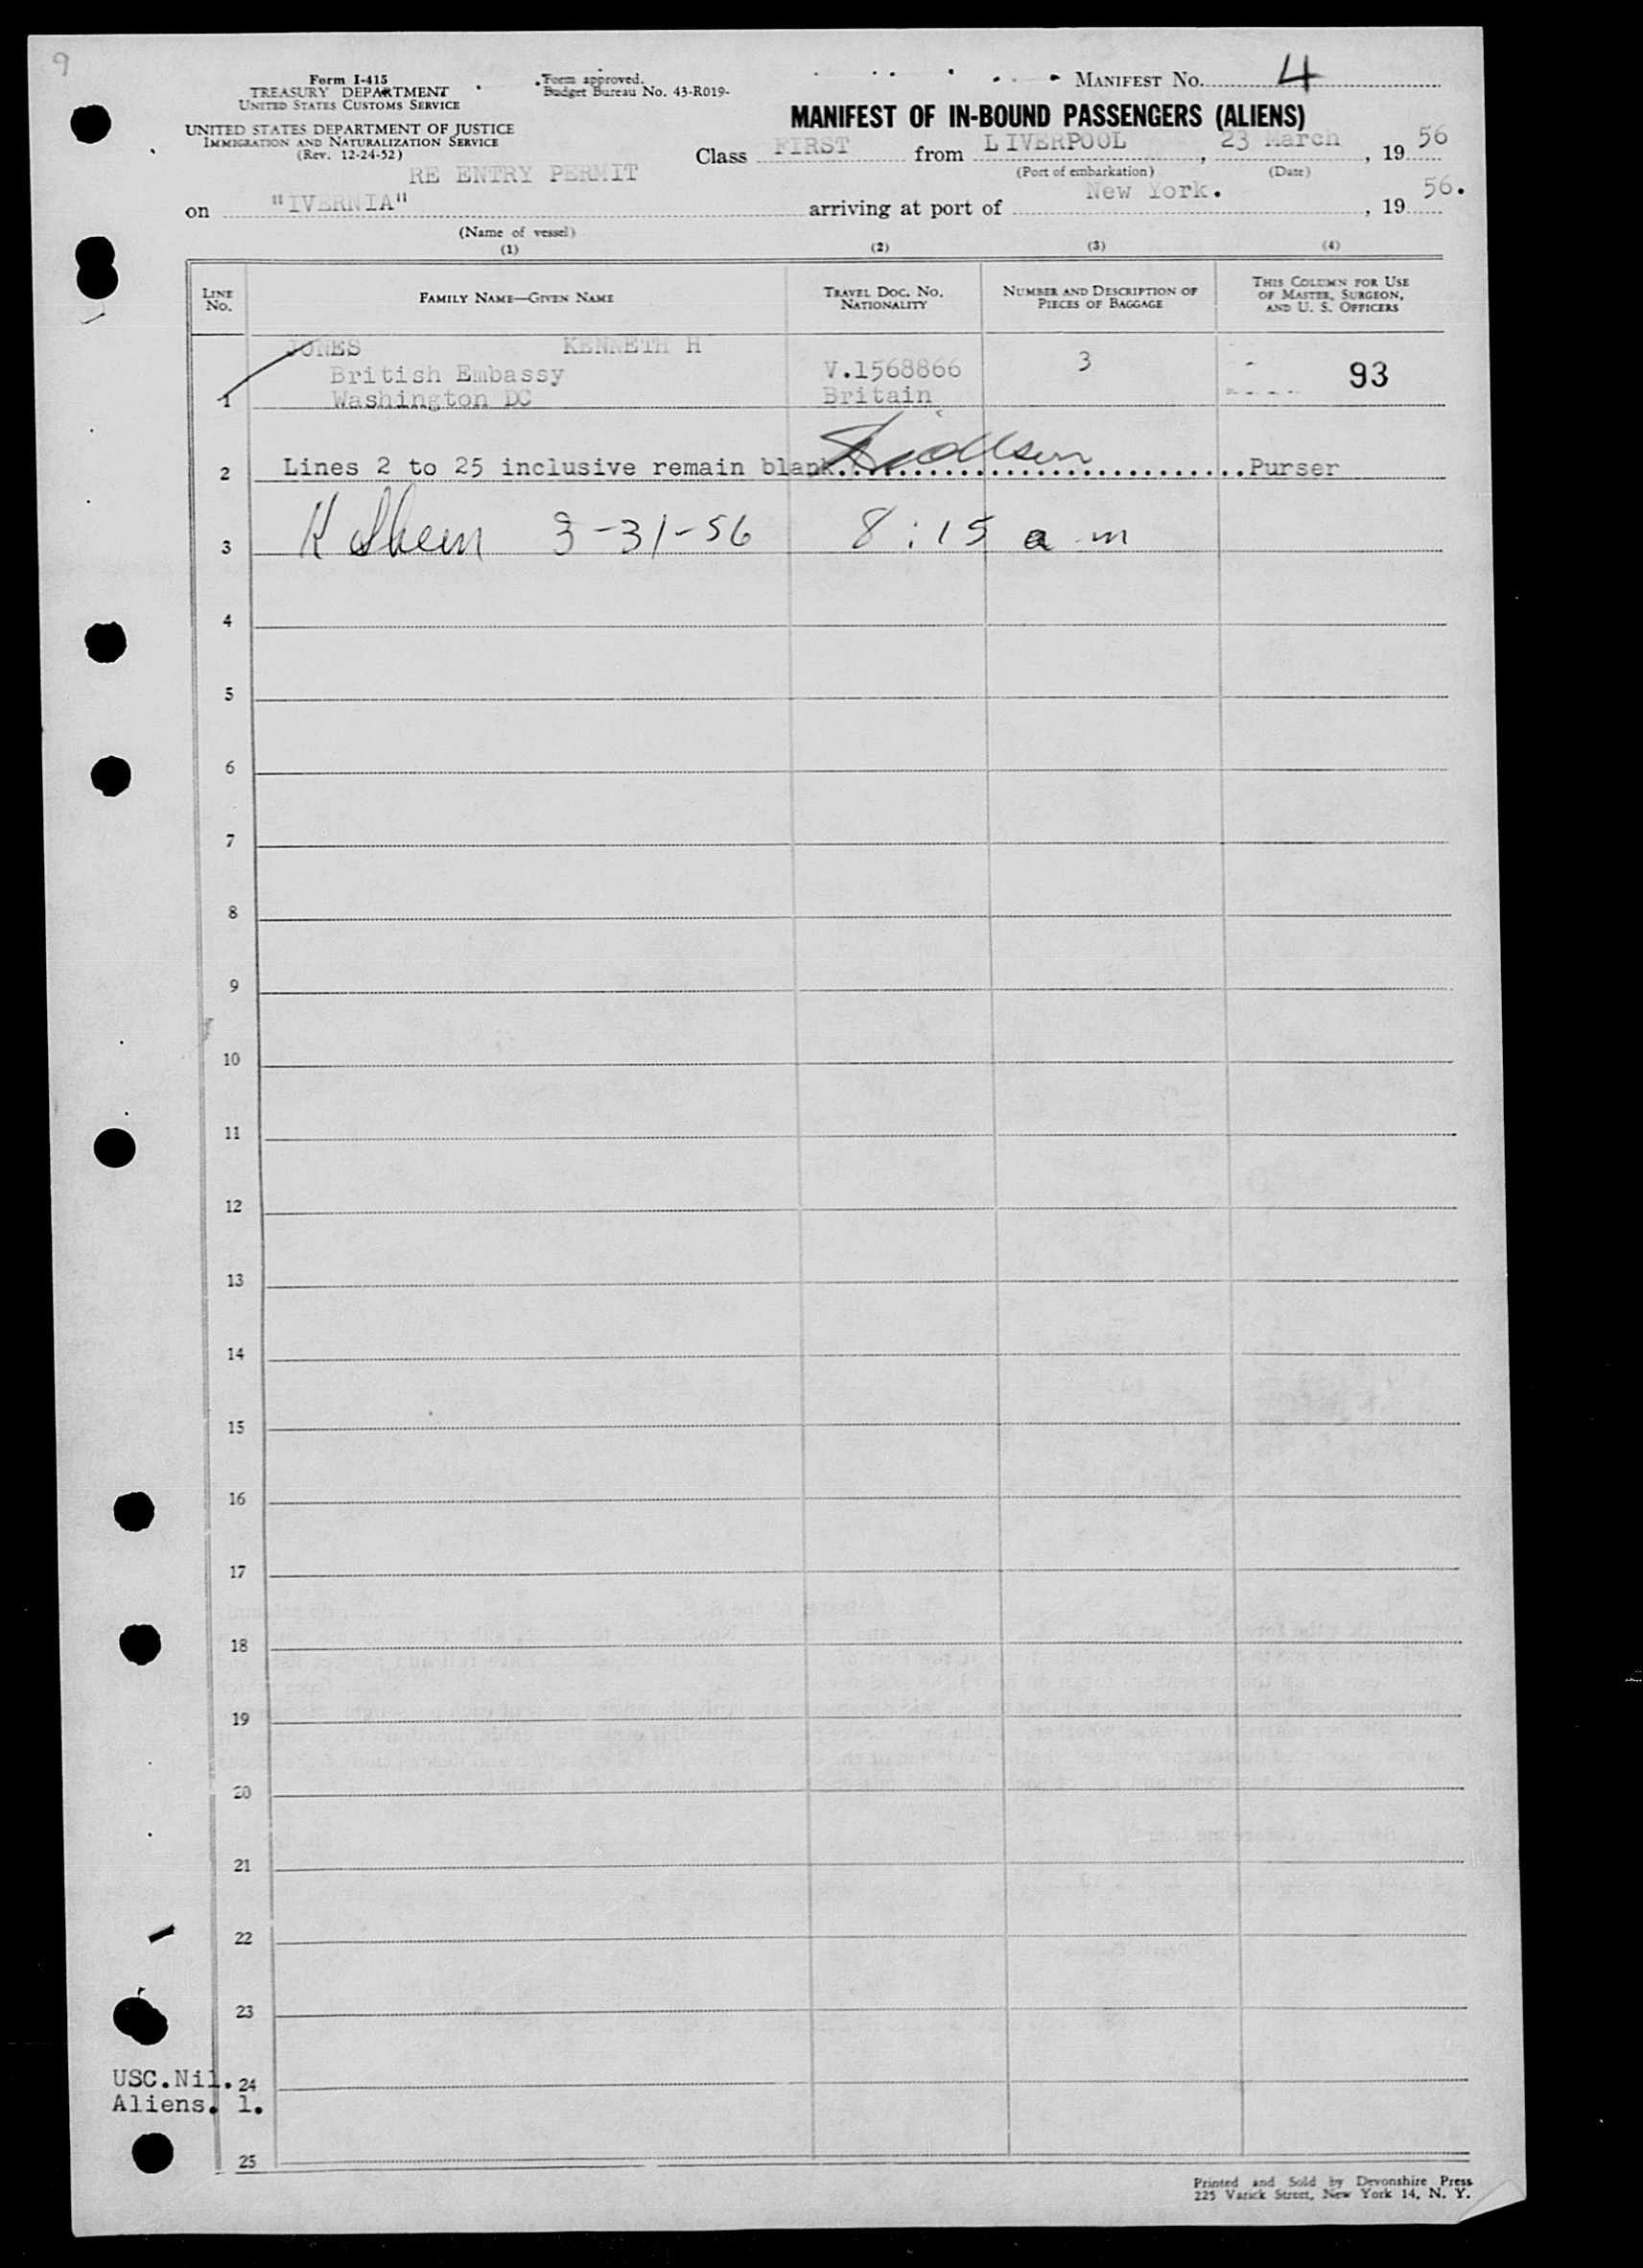 9
Form I-415
TREASURY DEPARTMENT
UNITED STATES CUSTOMS SERVICE
UNITED STATES DEPARTMENT OF JUSTICE
IMMIGRATION AND NATURALIZATION SERVICE
(Rev. 12-24-52)
Form approved.
Budget Bureau No. 43-R019-
MANIFEST No. 4
MANIFEST OF IN-BOUND PASSENGERS (ALIENS)
Class FIRST from LIVERPOOL, 23 March, 19 56
(Port of embarkation) (Date)
RE ENTRY PERMIT
on "IVERNIA" arriving at port of New York., 19 56.
(Name of vessel)
(1) (2) (3) (4)
LINE No.
FAMILY NAME—GIVEN NAME
TRAVEL DOC. NO. NATIONALITY
NUMBER AND DESCRIPTION OF PIECES OF BAGGAGE
THIS COLUMN FOR USE OF MASTER, SURGEON, AND U. S. OFFICERS
JONES KENNETH H
British Embassy V.1568866 3 93
1 Washington DC Britain
2 Lines 2 to 25 inclusive remain blank. Purser
3 3-31-56 8:15 a m
4
5
6
7
8
9
10
11
12
13
14
15
16
17
18
19
20
21
22
23
USC.Nil. 24
Aliens. 1.
25
Printed and Sold by Devonshire Press
225 Varick Street, New York 14, N. Y.